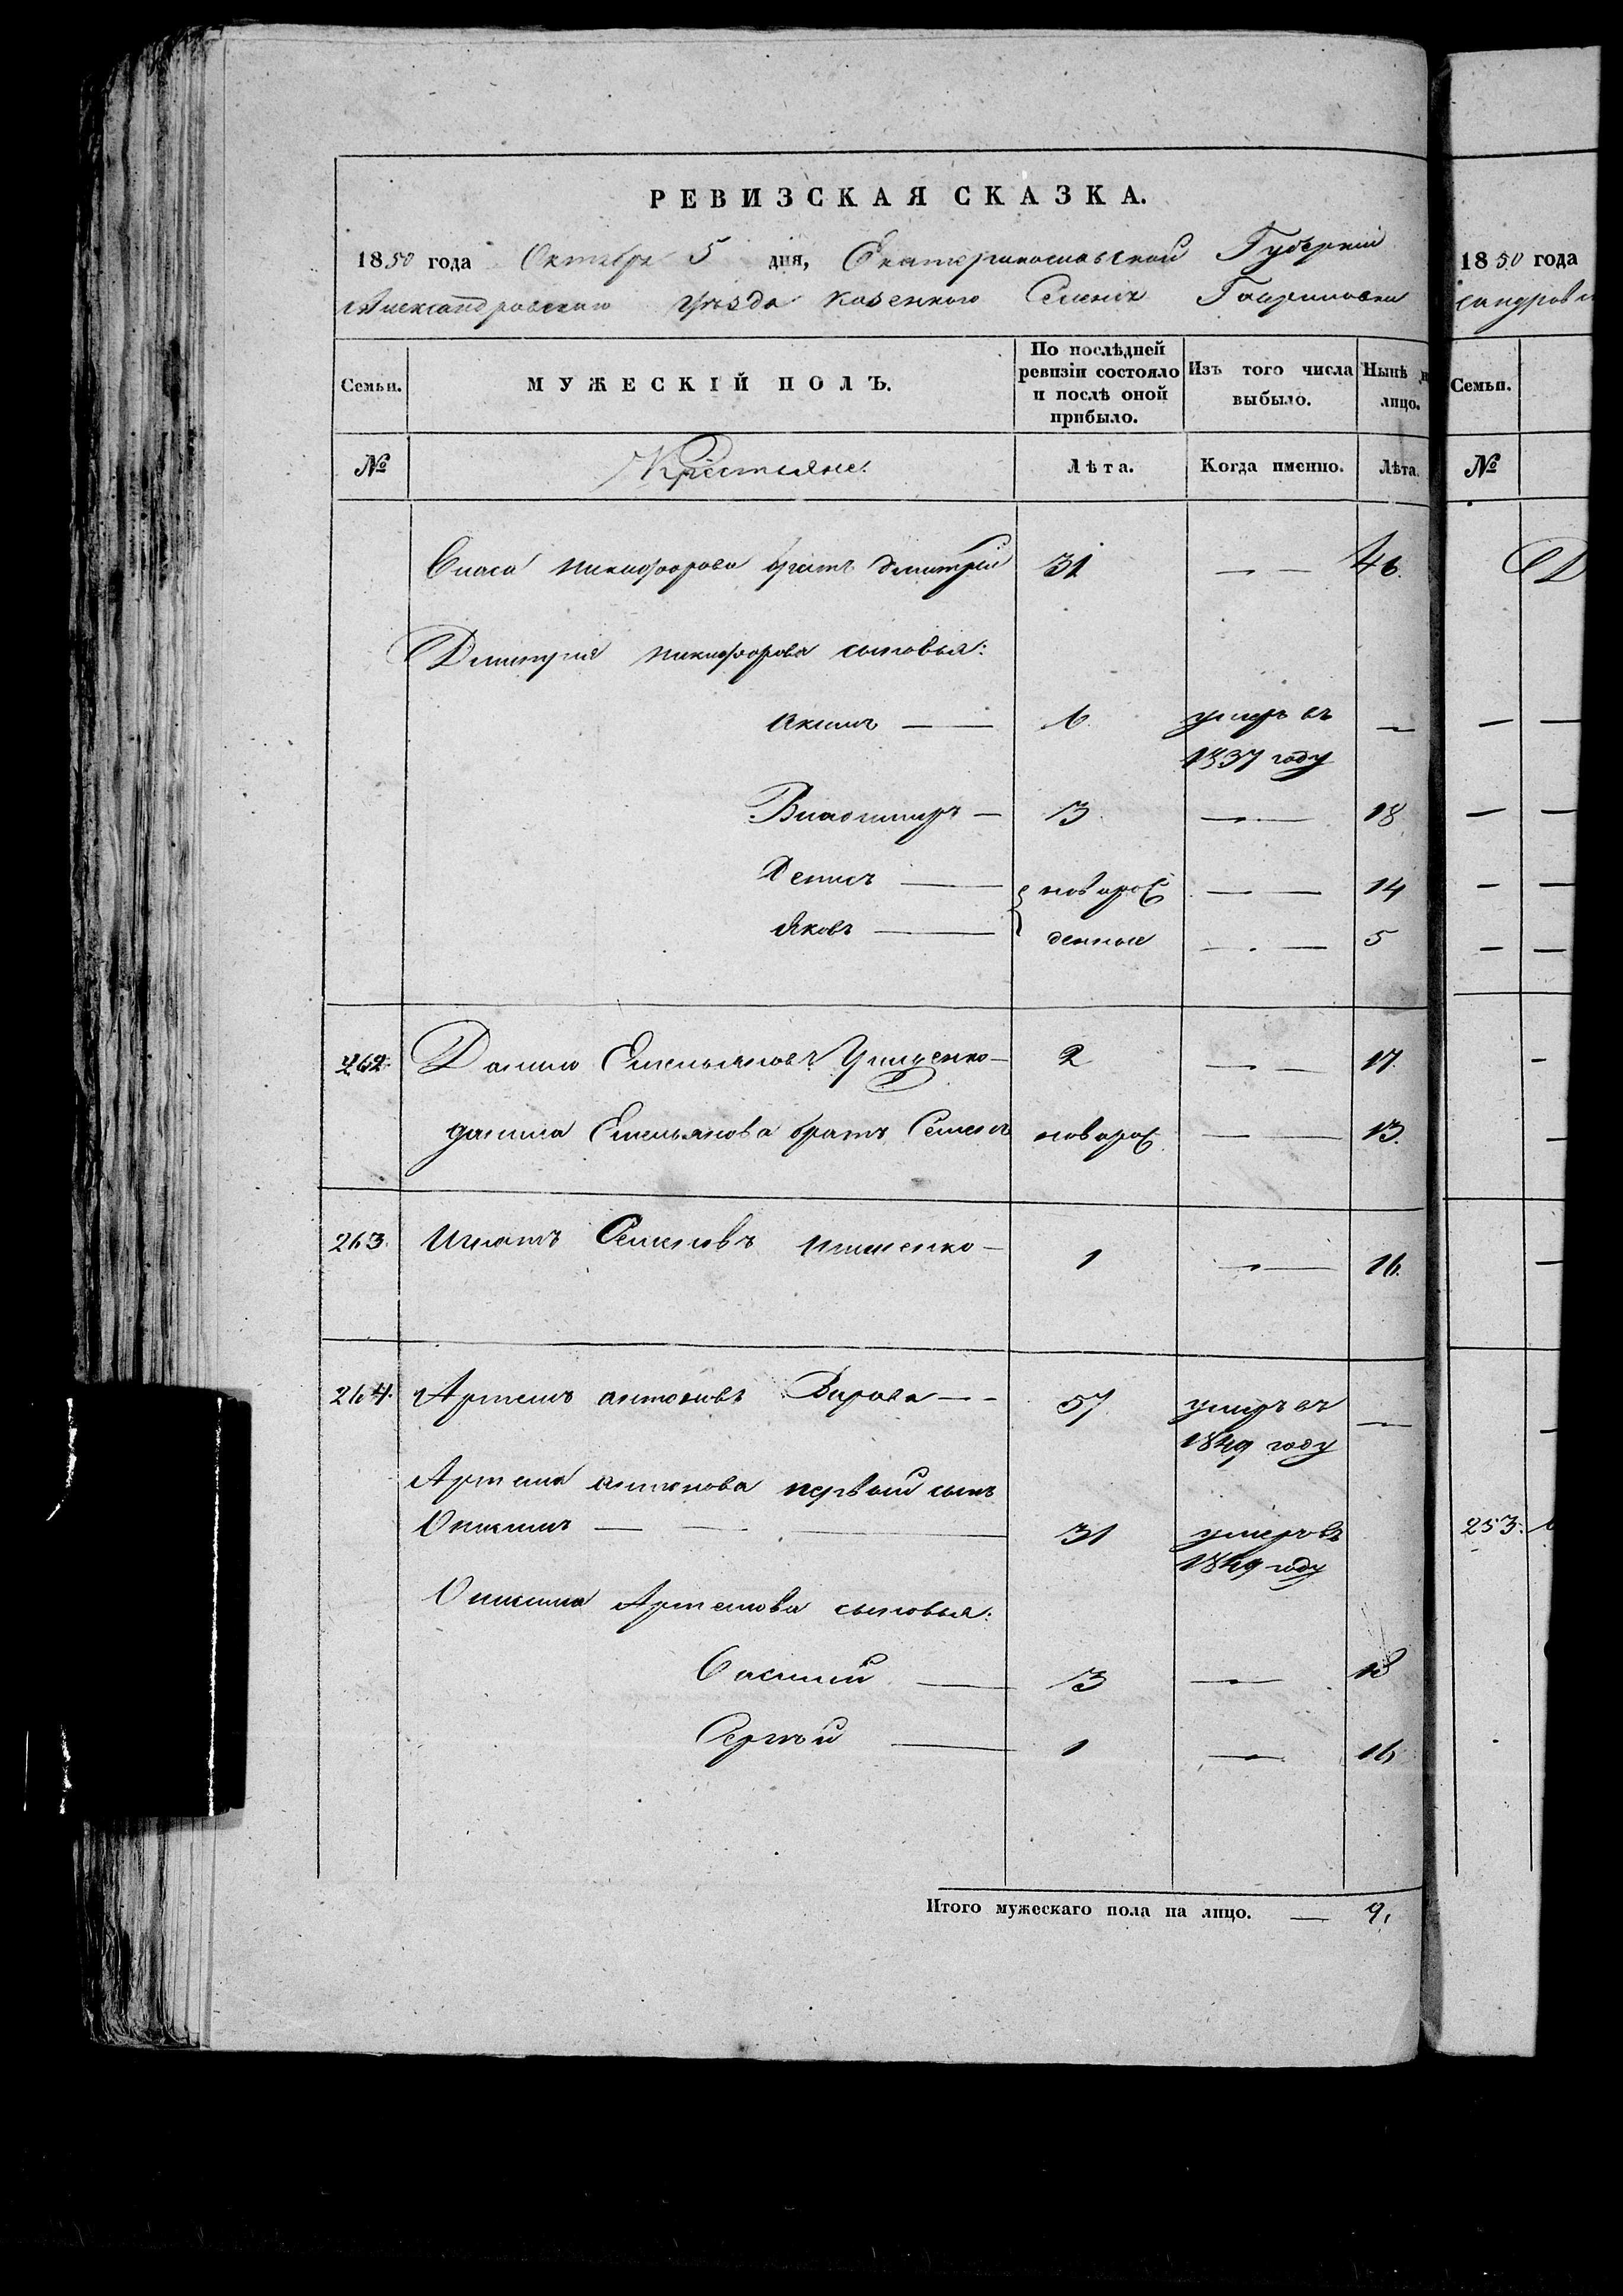 РЕВИЗСКАЯ СКАЗКА.
1850 года Октября 5 дня, Екатеринославской Губерніи
Александровскаго уѣзда казеннаго Селенія Гавриловки
Семьи. МУЖЕСКІЙ ПОЛЪ. По послѣдней ревизіи состояло и послѣ оной прибыло. Изъ того числа выбыло. Нынѣ на лицо.
№ Крестьяне. Лѣта. Когда именно. Лѣта.
Никифорова братъ Дмитрій 31 — — 46.
Дмитрія Никифорова сыновья:
Акимъ — 6 умеръ въ —
1837 году
Владимиръ — 3 — — 18
Денисъ — новорож — — 14
Яковъ — денные — — 5
262. Данило Емельяновъ — 2 — — 17.
Данила Емельянова братъ Семенъ новорож. — — 13.
263. Игнатъ Семеновъ — 1 — — 16.
264. Артемъ Антоновъ — — 57 умеръ въ —
1849 году
Артема Антонова первый сынъ
Онисимъ — — — 31 умеръ въ
1849 году
Онисима Артемова сыновья:
Василій — 3 — — 18
Сергѣй — 1 — — 16
Итого мужескаго пола на лицо. — 9.
1850 года
Семьи.
№
253.